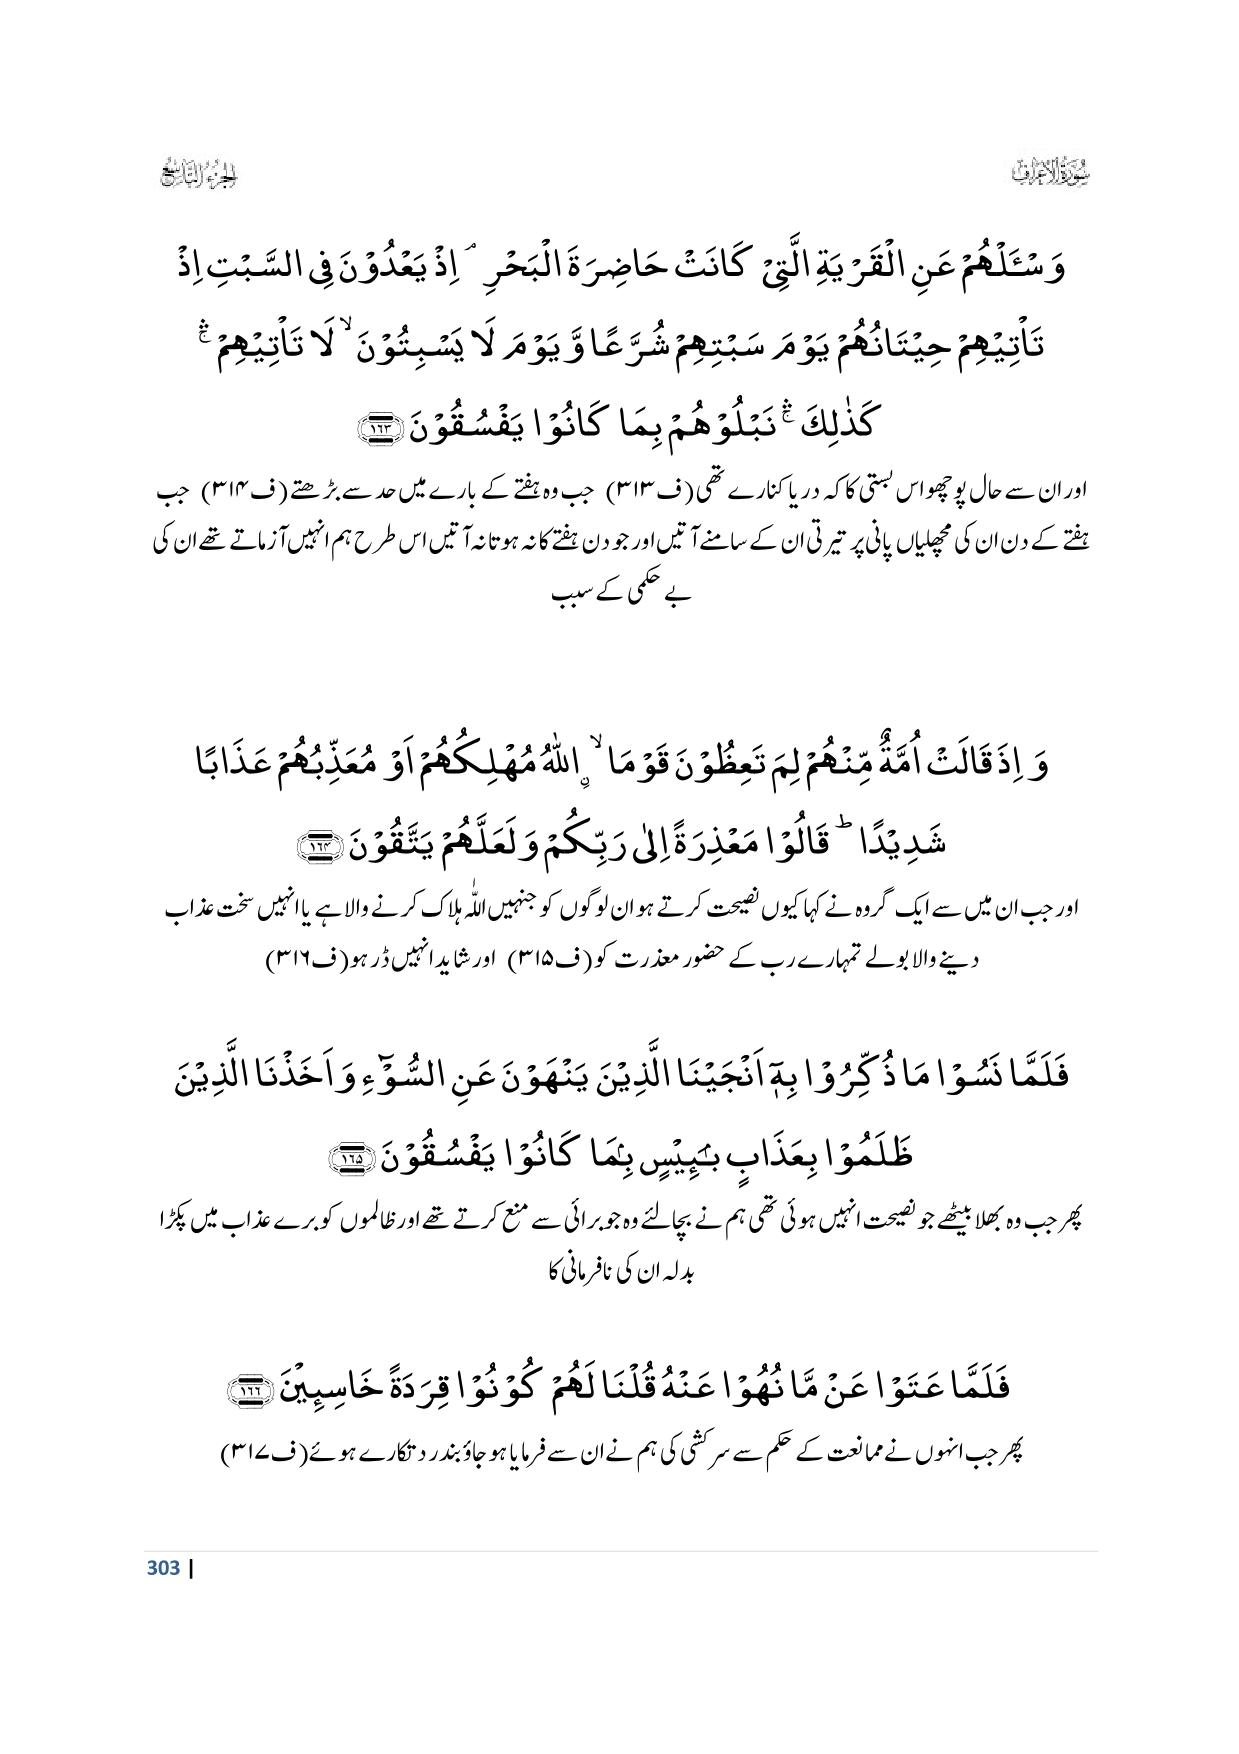 سُوْرَةُ الْاَعْرَافِ
الْجُزْءُ التَّاسِعُ
وَ سْـَٔلْهُمْ عَنِ الْقَرْيَةِ الَّتِيْ كَانَتْ حَاضِرَةَ الْبَحْرِ ۘ اِذْ يَعْدُوْنَ فِي السَّبْتِ اِذْ
تَاْتِيْهِمْ حِيْتَانُهُمْ يَوْمَ سَبْتِهِمْ شُرَّعًا وَّ يَوْمَ لَا يَسْبِتُوْنَ ۙ لَا تَاْتِيْهِمْ ۛۚ
كَذٰلِكَ ۛۚ نَبْلُوْهُمْ بِمَا كَانُوْا يَفْسُقُوْنَ ﴿۱۶۳﴾
اور ان سے حال پوچھو اس بستی کا کہ دریا کنارے تھی (ف۳۱۳) جب وہ ہفتے کے بارے میں حد سے بڑھتے (ف۳۱۴) جب
ہفتے کے دن ان کی مچھلیاں پانی پر تیرتی ان کے سامنے آتیں اور جو دن ہفتے کا نہ ہوتا نہ آتیں اس طرح ہم انہیں آزماتے تھے ان کی
بے حکمی کے سبب
وَ اِذْ قَالَتْ اُمَّةٌ مِّنْهُمْ لِمَ تَعِظُوْنَ قَوْمَا ۙ ۣاللّٰهُ مُهْلِكُهُمْ اَوْ مُعَذِّبُهُمْ عَذَابًا
شَدِيْدًا ؕ قَالُوْا مَعْذِرَةً اِلٰى رَبِّكُمْ وَ لَعَلَّهُمْ يَتَّقُوْنَ ﴿۱۶۴﴾
اور جب ان میں سے ایک گروہ نے کہا کیوں نصیحت کرتے ہو ان لوگوں کو جنہیں اللہ ہلاک کرنے والا ہے یا انہیں سخت عذاب
دینے والا بولے تمہارے رب کے حضور معذرت کو (ف۳۱۵) اور شاید انہیں ڈر ہو (ف۳۱۶)
فَلَمَّا نَسُوْا مَا ذُكِّرُوْا بِهٖۤ اَنْجَيْنَا الَّذِيْنَ يَنْهَوْنَ عَنِ السُّوْٓءِ وَ اَخَذْنَا الَّذِيْنَ
ظَلَمُوْا بِعَذَابٍۭ بَـِٕيْسٍۭ بِمَا كَانُوْا يَفْسُقُوْنَ ﴿۱۶۵﴾
پھر جب وہ بھلا بیٹھے جو نصیحت انہیں ہوئی تھی ہم نے بچالئے وہ جو برائی سے منع کرتے تھے اور ظالموں کو برے عذاب میں پکڑا
بدلہ ان کی نافرمانی کا
فَلَمَّا عَتَوْا عَنْ مَّا نُهُوْا عَنْهُ قُلْنَا لَهُمْ كُوْنُوْا قِرَدَةً خَاسِـِٕيْنَ ﴿۱۶۶﴾
پھر جب انہوں نے ممانعت کے حکم سے سرکشی کی ہم نے ان سے فرمایا ہو جاؤ بندر دتکارے ہوئے (ف۳۱۷)
303 |